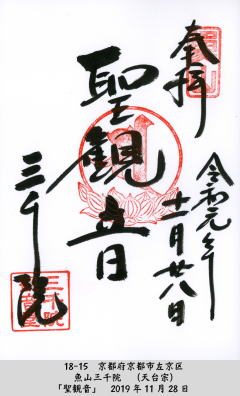 奉拝
令和元年
十一月廿八日
聖観音
三千院
18-15 京都府京都市左京区
魚山三千院 (天台宗)
「聖観音」 2019年11月28日